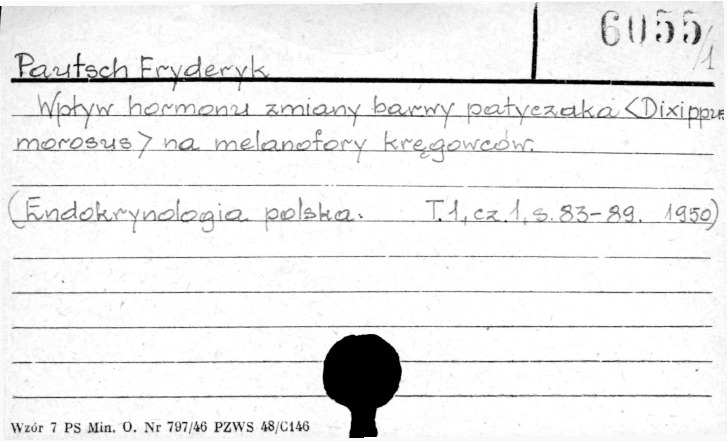 6055/1
Pautsch Fryderyk
Wpływ hormonu zmiany barwy patyczaka <Dixippus
morosus> na melanofory kręgowców.
(Endokrynologia polska. T.1, cz.1, s. 83-89. 1950)
Wzór 7 PS Min. O. Nr 797/46 PZWS 48/C146